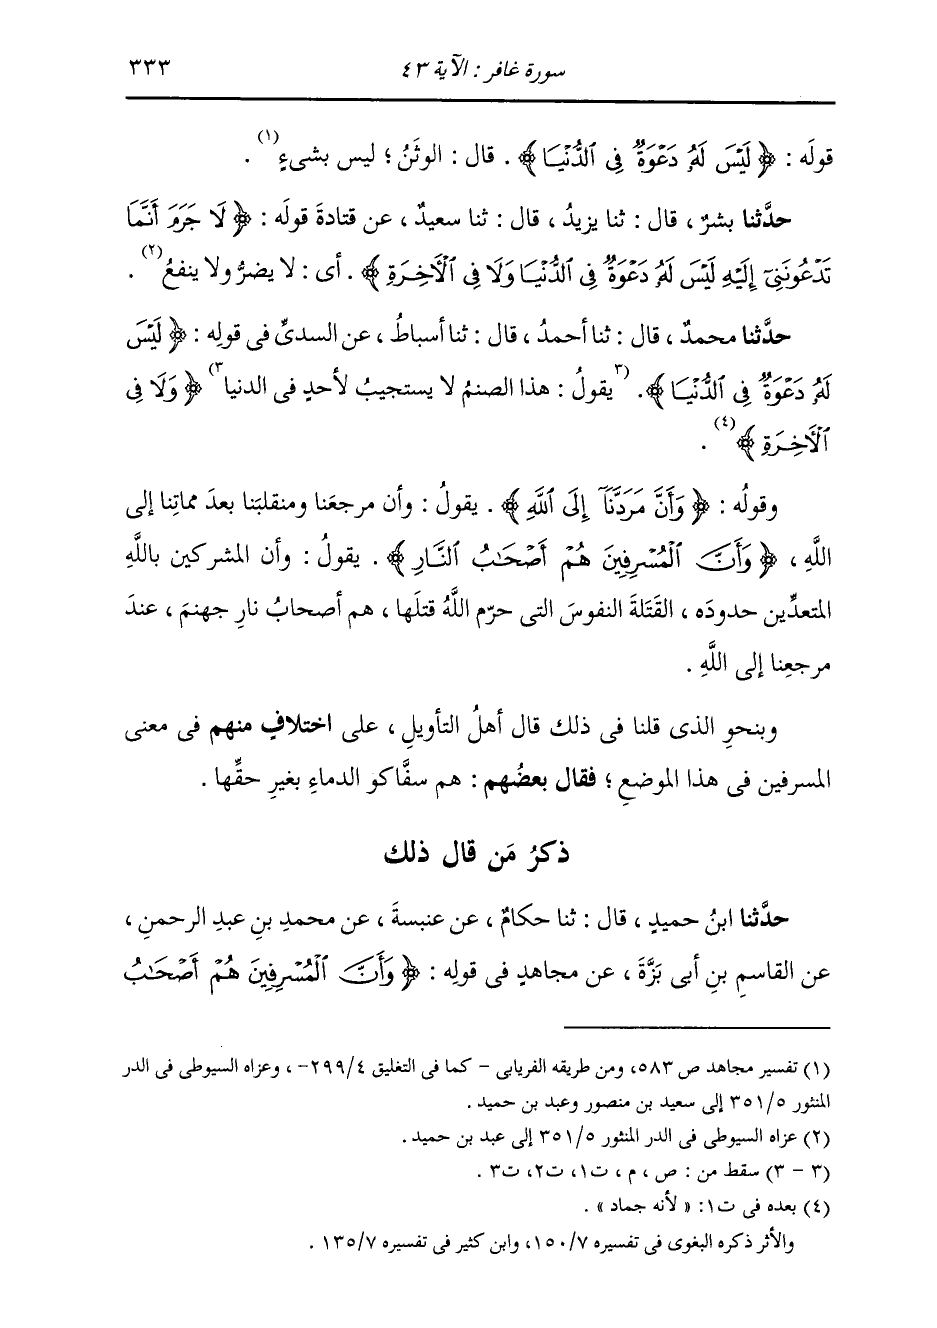 سورة غافر : الآية ٤٣
٣٣٣
قولَه : ﴿ لَيْسَ لَهُۥ دَعْوَةٌ فِى ٱلدُّنْيَا ﴾ . قال : الوثَنُ ؛ ليس بشىءٍ(١) .
حدَّثنا بشرٌ ، قال : ثنا يزيدُ ، قال : ثنا سعيدٌ ، عن قتادةَ قولَه : ﴿ لَا جَرَمَ أَنَّمَا
تَدْعُونَنِىٓ إِلَيْهِ لَيْسَ لَهُۥ دَعْوَةٌ فِى ٱلدُّنْيَا وَلَا فِى ٱلْأَخِرَةِ ﴾ . أى : لا يضرُّ ولا ينفعُ(٢) .
حدَّثنا محمدٌ ، قال : ثنا أحمدُ ، قال : ثنا أسباطُ ، عن السدىِّ فى قولِه : ﴿ لَيْسَ
لَهُۥ دَعْوَةٌ فِى ٱلدُّنْيَا ﴾ . (٣ يقولُ : هذا الصنمُ لا يستجيبُ لأحدٍ فى الدنيا ٣) ﴿ وَلَا فِى
ٱلْأَخِرَةِ ﴾(٤) .
وقولُه : ﴿ وَأَنَّ مَرَدَّنَآ إِلَى ٱللَّهِ ﴾ . يقولُ : وأن مرجعَنا ومنقلبَنا بعدَ مماتِنا إلى
اللَّهِ ، ﴿ وَأَنَّ ٱلْمُسْرِفِينَ هُمْ أَصْحَٰبُ ٱلنَّارِ ﴾ . يقولُ : وأن المشركين باللَّهِ
المتعدِّين حدودَه ، القَتَلةَ النفوسَ التى حرّم اللَّهُ قتلَها ، هم أصحابُ نارِ جهنمَ ، عندَ
مرجعِنا إلى اللَّهِ .
وبنحوِ الذى قلنا فى ذلك قال أهلُ التأويلِ ، على اختلافٍ منهم فى معنى
المسرفين فى هذا الموضعِ ؛ فقال بعضُهم : هم سفَّاكو الدماءِ بغيرِ حقِّها .
ذكرُ مَن قال ذلك
حدَّثنا ابنُ حميدٍ ، قال : ثنا حكامٌ ، عن عنبسةَ ، عن محمدِ بنِ عبدِ الرحمنِ ،
عن القاسمِ بنِ أبى بَزَّةَ ، عن مجاهدٍ فى قولِه : ﴿ وَأَنَّ ٱلْمُسْرِفِينَ هُمْ أَصْحَٰبُ
(١) تفسير مجاهد ص ٥٨٣، ومن طريقه الفريابى - كما فى التغليق ٢٩٩/٤- ، وعزاه السيوطى فى الدر
المنثور ٣٥١/٥ إلى سعيد بن منصور وعبد بن حميد .
(٢) عزاه السيوطى فى الدر المنثور ٣٥١/٥ إلى عبد بن حميد .
(٣ - ٣) سقط من : ص ، م ، ت١، ت٢، ت٣ .
(٤) بعده فى ت١: « لأنه جماد » .
والأثر ذكره البغوى فى تفسيره ١٥٠/٧، وابن كثير فى تفسيره ١٣٥/٧ .